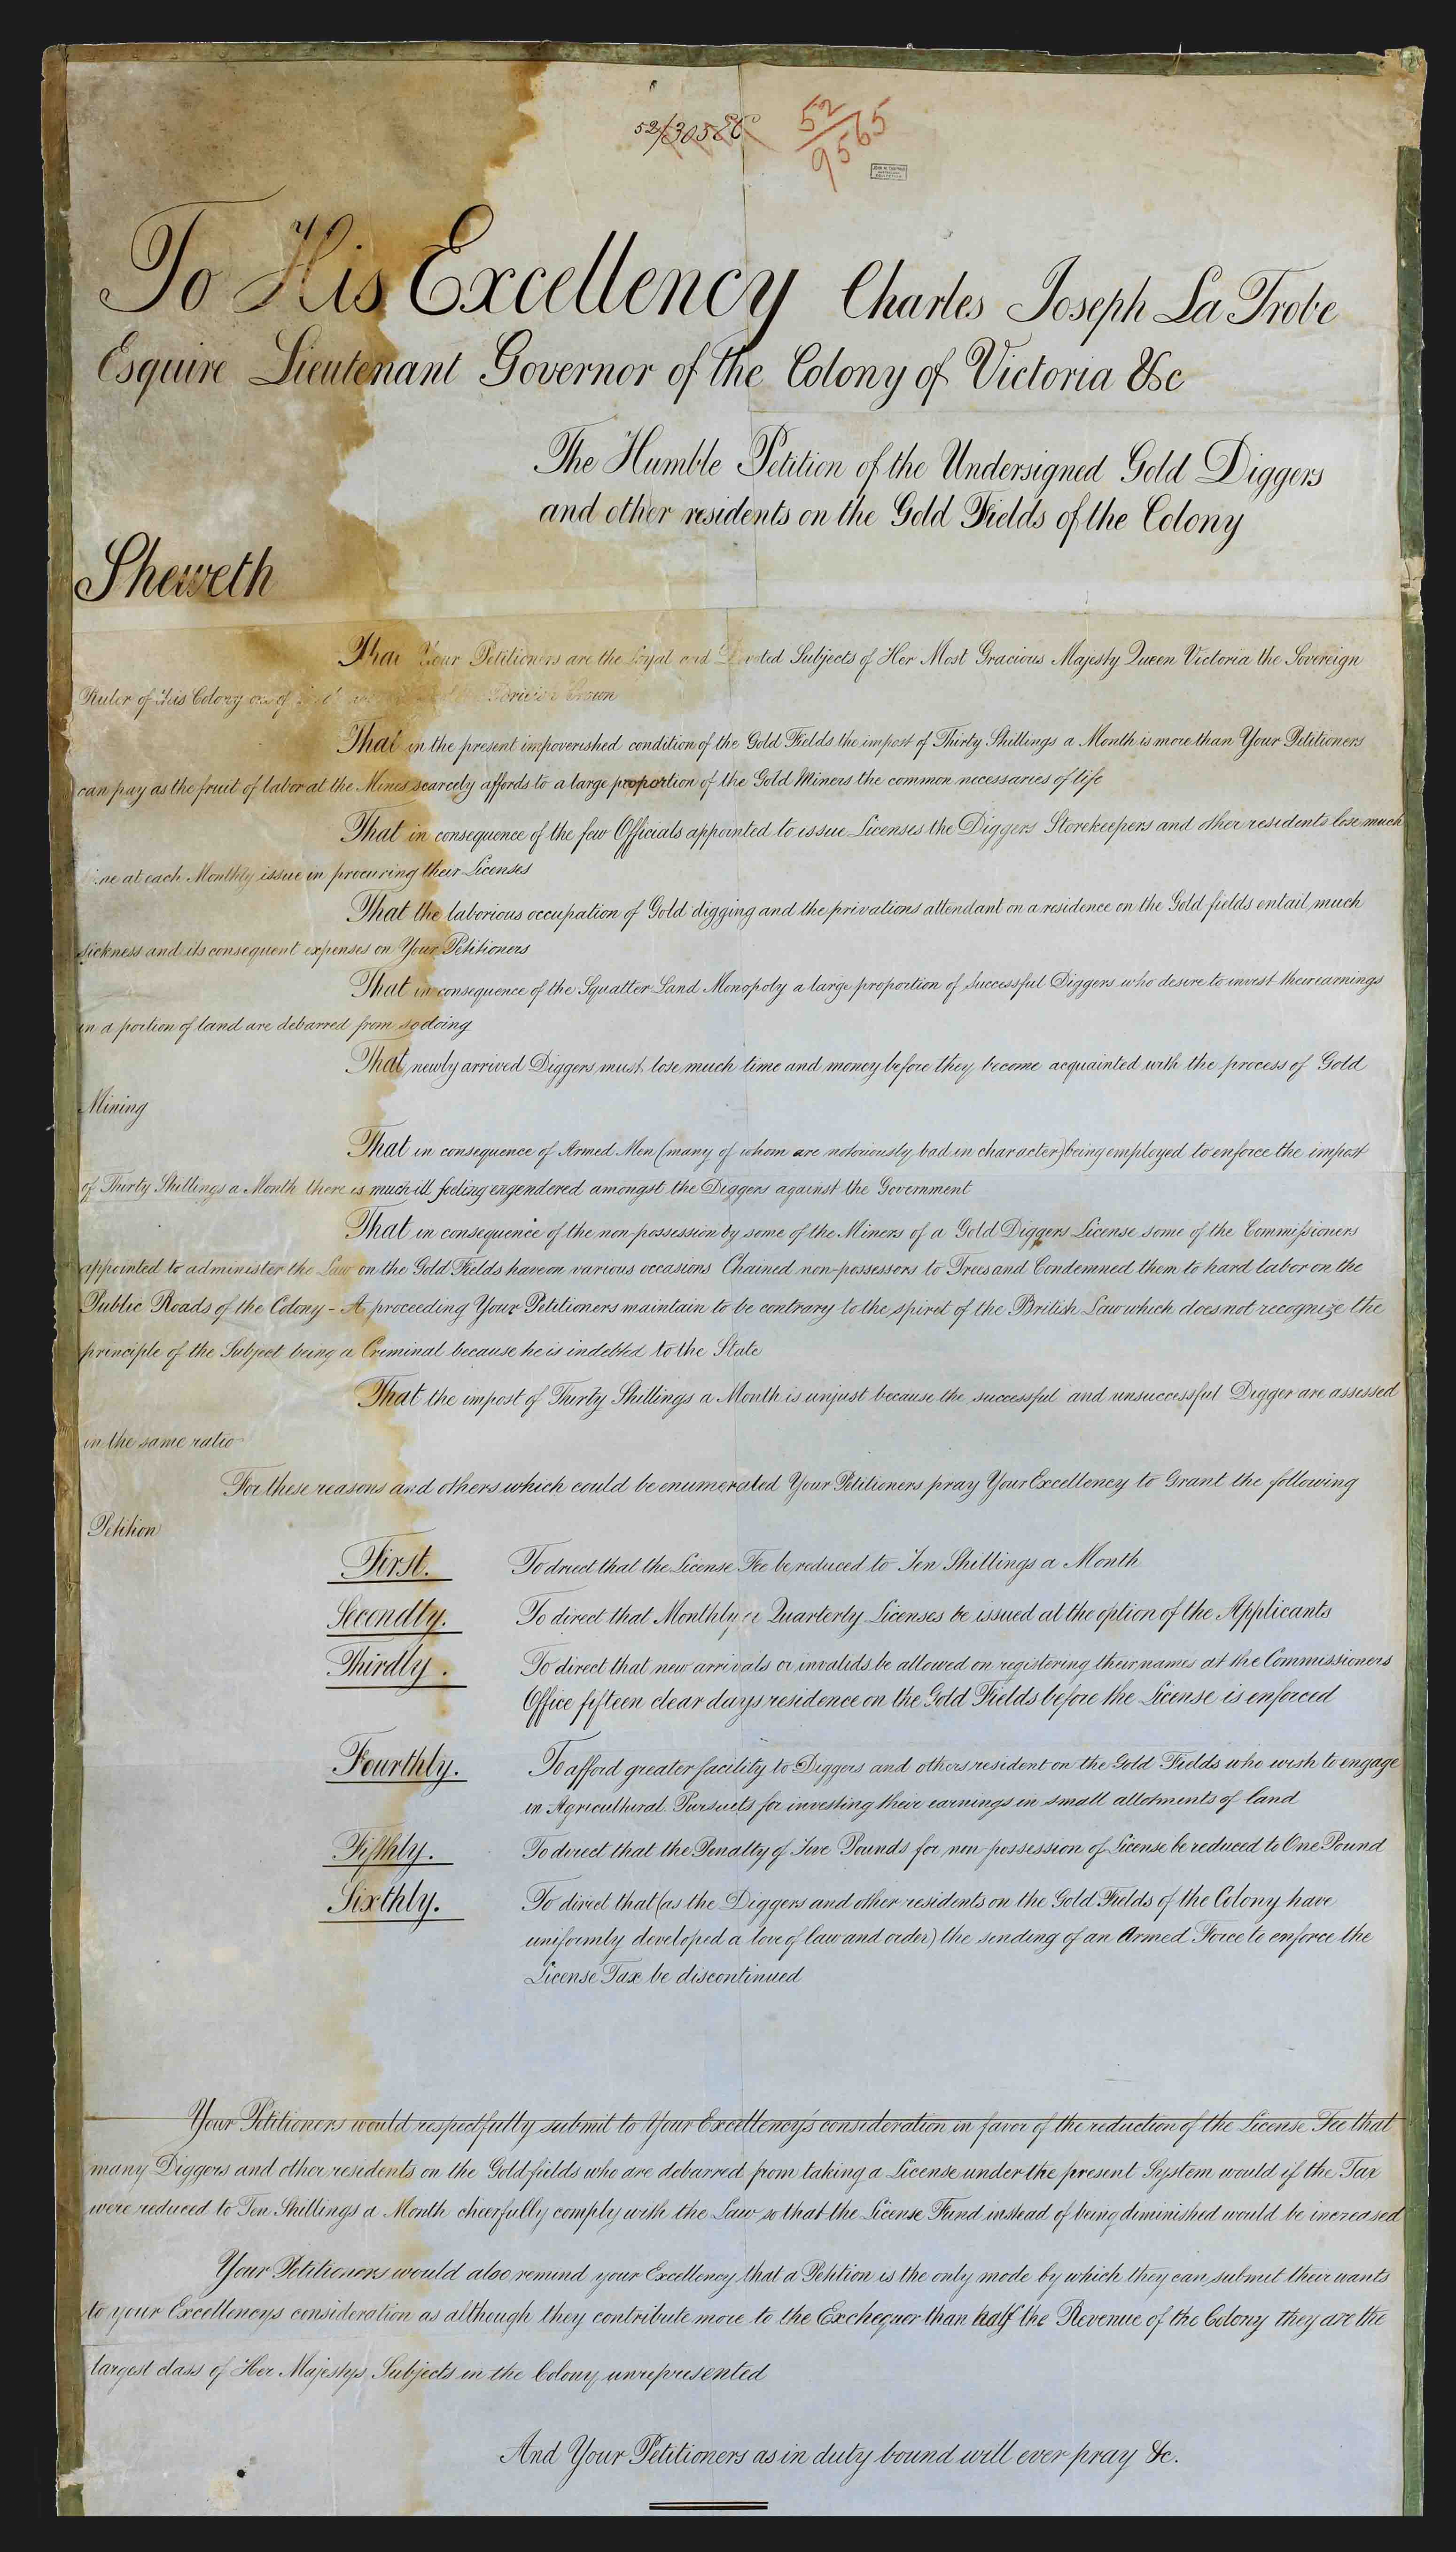 52/
52/9565
To His Excellency Charles Joseph La Trobe
Esquire Lieutenant Governor of the Colony of Victoria &c
The Humble Petition of the Undersigned Gold Diggers
and other residents on the Gold Fields of the Colony
Sheweth
That Your Petitioners are the Loyal and Devoted Subjects of Her Most Gracious Majesty Queen Victoria the Sovereign
Ruler of this Colony one of the British Crown
That in the present impoverished condition of the Gold Fields the impost of Thirty Shillings a Month is more than Your Petitioners
can pay as the fruit of labor at the Mines scarcely affords to a large proportion of the Gold Miners the common necessaries of life
That in consequence of the few Officials appointed to issue Licenses the Diggers Storekeepers and other residents lose much
time at each Monthly issue in procuring their Licenses
That the laborious occupation of Gold digging and the privations attendant on a residence on the Gold fields entail much
sickness and its consequent expenses on Your Petitioners
That in consequence of the Squatter Land Monopoly a large proportion of Successful Diggers who desire to invest their earnings
in a portion of land are debarred from so doing
That newly arrived Diggers must lose much time and money before they become acquainted with the process of Gold
Mining
That in consequence of Armed Men (many of whom are notoriously bad in character) being employed to enforce the impost
of Thirty Shillings a Month there is much ill feeling engendered amongst the Diggers against the Government
That in consequence of the non-possession by some of the Miners of a Gold Diggers License some of the Commissioners
appointed to administer the Law on the Gold Fields have on various occasions Chained non-possessors to Trees and Condemned them to hard labor on the
Public Roads of the Colony - A proceeding Your Petitioners maintain to be contrary to the spirit of the British Law which does not recognize the
principle of the Subject being a Criminal because he is indebted to the State
That the impost of Thirty Shillings a Month is unjust because the successful and unsuccessful Digger are assessed
in the same ratio
For these reasons and others which could be enumerated Your Petitioners pray Your Excellency to Grant the following
Petition
First. To direct that the License Fee be reduced to Ten Shillings a Month
Secondly. To direct that Monthly or Quarterly Licenses be issued at the option of the Applicants
Thirdly. To direct that new arrivals or invalids be allowed on registering their names at the Commissioners
Office fifteen clear days residence on the Gold Fields before the License is enforced
Fourthly. To afford greater facility to Diggers and others resident on the Gold Fields who wish to engage
in Agricultural Pursuits for investing their earnings in small allotments of land
Fifthly. To direct that the Penalty of Five Pounds for non-possession of License be reduced to One Pound
Sixthly. To direct that (as the Diggers and other residents on the Gold Fields of the Colony have
uniformly developed a love of law and order) the sending of an Armed Force to enforce the
License Tax be discontinued
Your Petitioners would respectfully submit to Your Excellency's consideration in favor of the reduction of the License Fee that
many Diggers and other residents on the Gold fields who are debarred from taking a License under the present System would if the Tax
were reduced to Ten Shillings a Month cheerfully comply with the Law so that the License Fund instead of being diminished would be increased
Your Petitioners would also remind your Excellency that a Petition is the only mode by which they can submit their wants
to your Excellencys consideration as although they contribute more to the Exchequer than half the Revenue of the Colony they are the
largest class of Her Majestys Subjects in the Colony unrepresented
And Your Petitioners as in duty bound will ever pray &c.